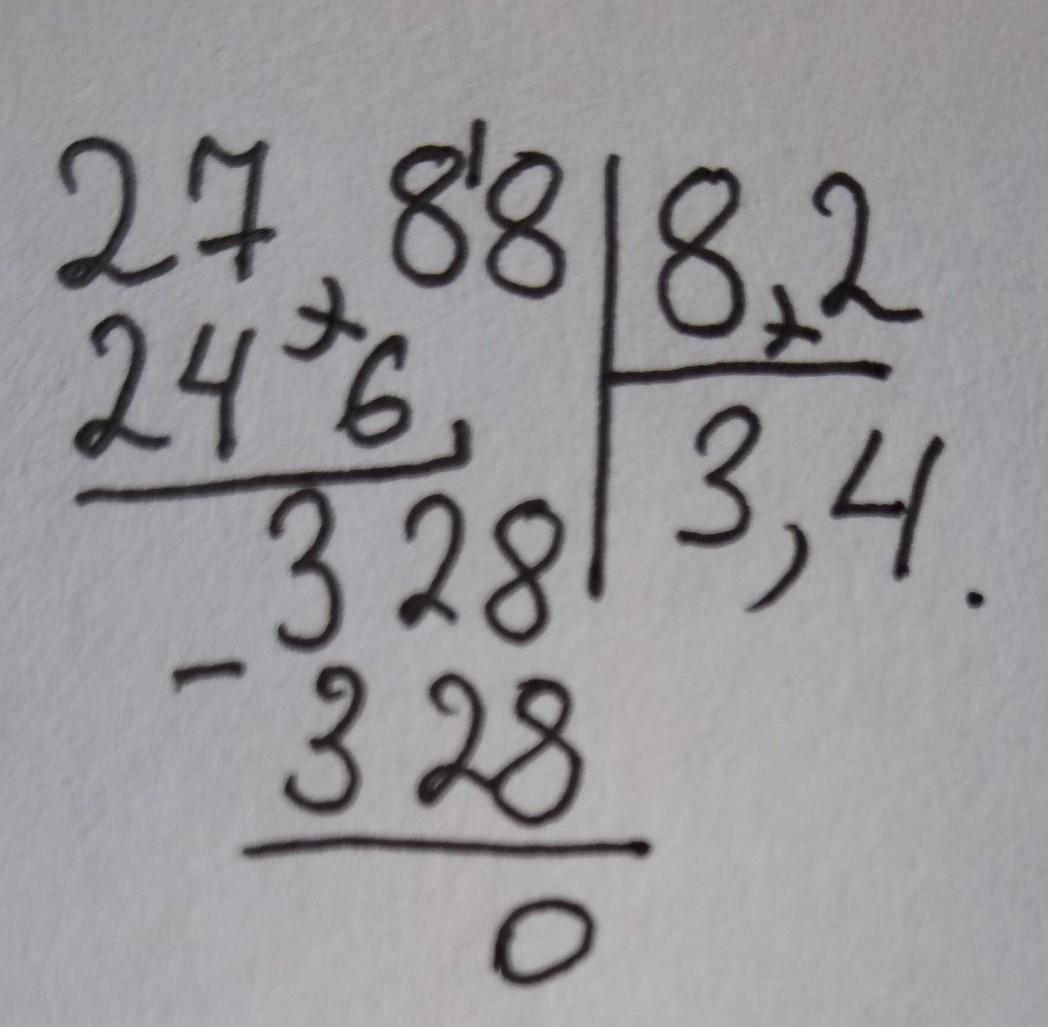 27,8'8 | 8,2
24 6,
3,4.
328
- 328
0